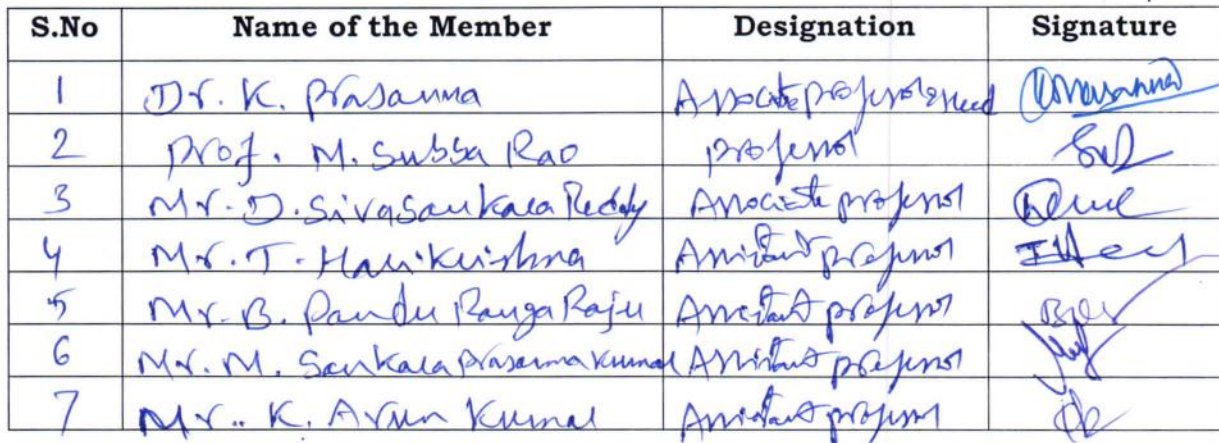 S.No Name of the Member Designation Signature
1 Dr. K. Prasanna Associate professor & Head
2 Prof. M. Subba Rao professor
3 Mr. D. Sivasankara Reddy Associate professor
4 Mr. T. Harikrishna Assistant professor
5 Mr. B. Pandu Ranga Raju Assistant professor
6 Mr. M. Sankara prasanna kumar Assistant professor
7 Mr.. K. Arun Kumar Assistant professor